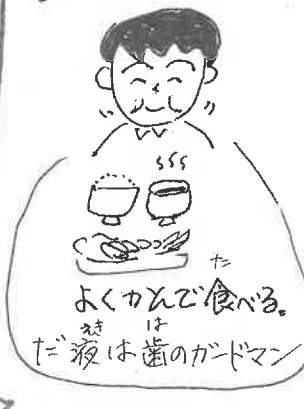 よくかんで食べる。
だ液は歯のガードマン